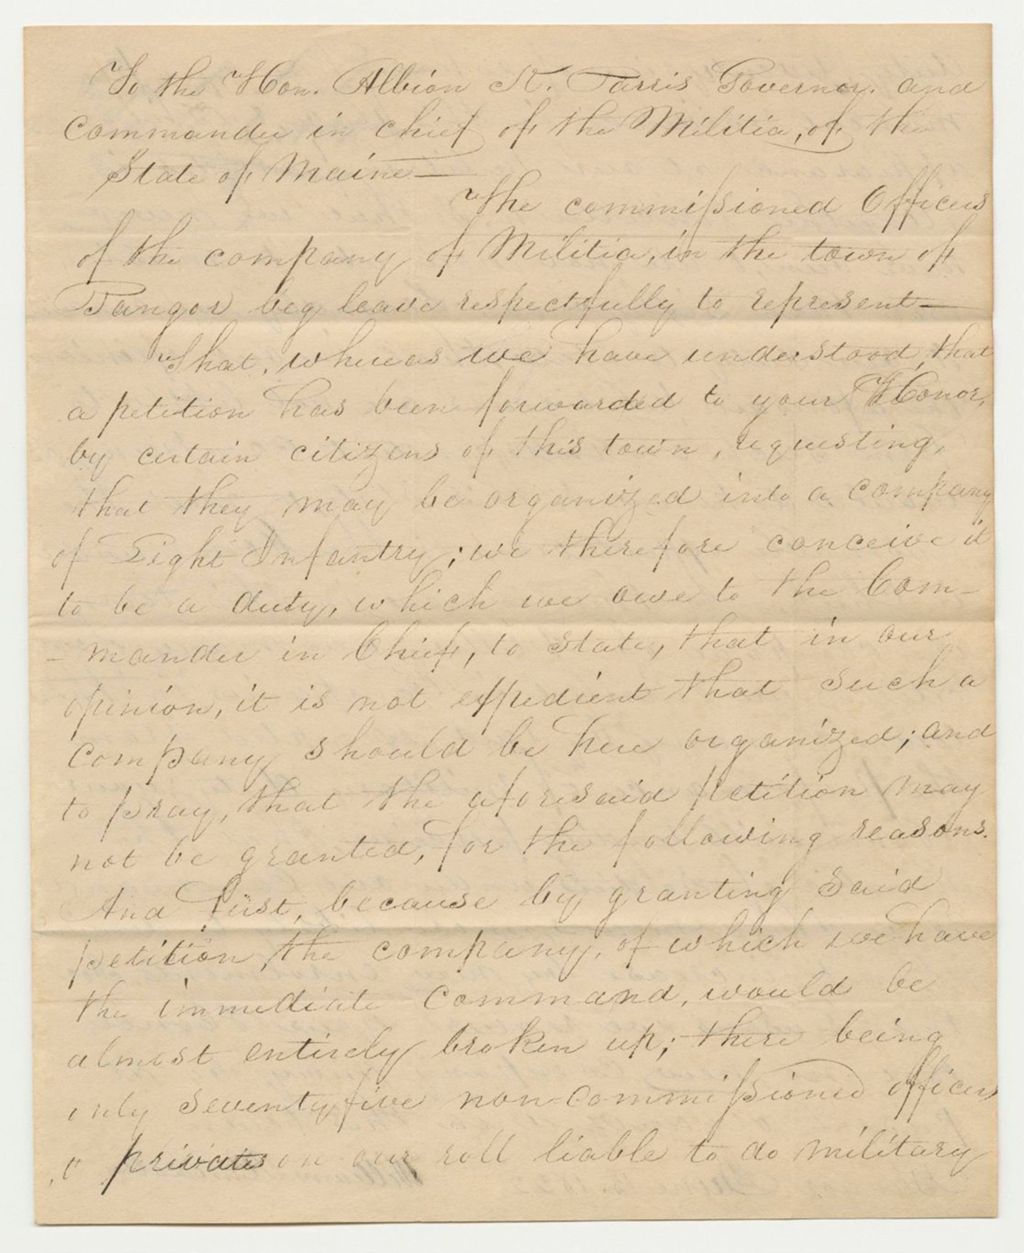 To the Hon. Albion K. Parris Governor and
Commander in chief of the Militia, of the
State of Maine—
The commissioned Officers
of the company of Militia, in the town of
Bangor beg leave respectfully to represent—
That, whereas we have understood, that
a petition has been forwarded to your Honor,
by certain citizens of this town, requesting,
that they may be organized into a company
of Light Infantry; we therefore conceive it
to be a duty, which we owe to the Com-
-mander in Chief, to state, that in our
opinion, it is not expedient that such a
company should be here organized; and
to pray, that the aforesaid petition may
not be granted, for the following reasons.
And first, because by granting said
petition, the company, of which we have
the immediate command, would be
almost entirely broken up; there being
only seventy five non-commissioned officers
& privates on our roll liable to do military